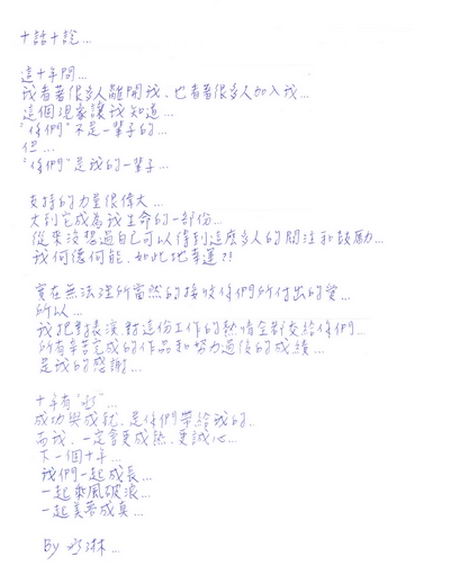 十話十說...
這十年間...
我看著很多人離開我、也看著很多人加入我...
這個過象讓我知道...
"你們"不是一輩子的...
但...
"你們"是我的一輩子...
支持的力量很偉大...
大到它成為我生命的一部份...
從來沒想過自己可以得到這麼多人的關注和鼓励...
我何德何能、如此地幸運?!
實在無法理所當然的接收你們所付出的愛...
所以...
我把對表演、對這份工作的熱情全部交給你們...
所有辛苦完成的作品和努力過後的成績...
是我的感謝...
十年有"...
成功與成就、是你們帶給我的.
而我、一定會更成熟、更誠心...
下一個十年...
我們一起成長...
一起乘風破浪...
一起美夢成真...
By 琳...